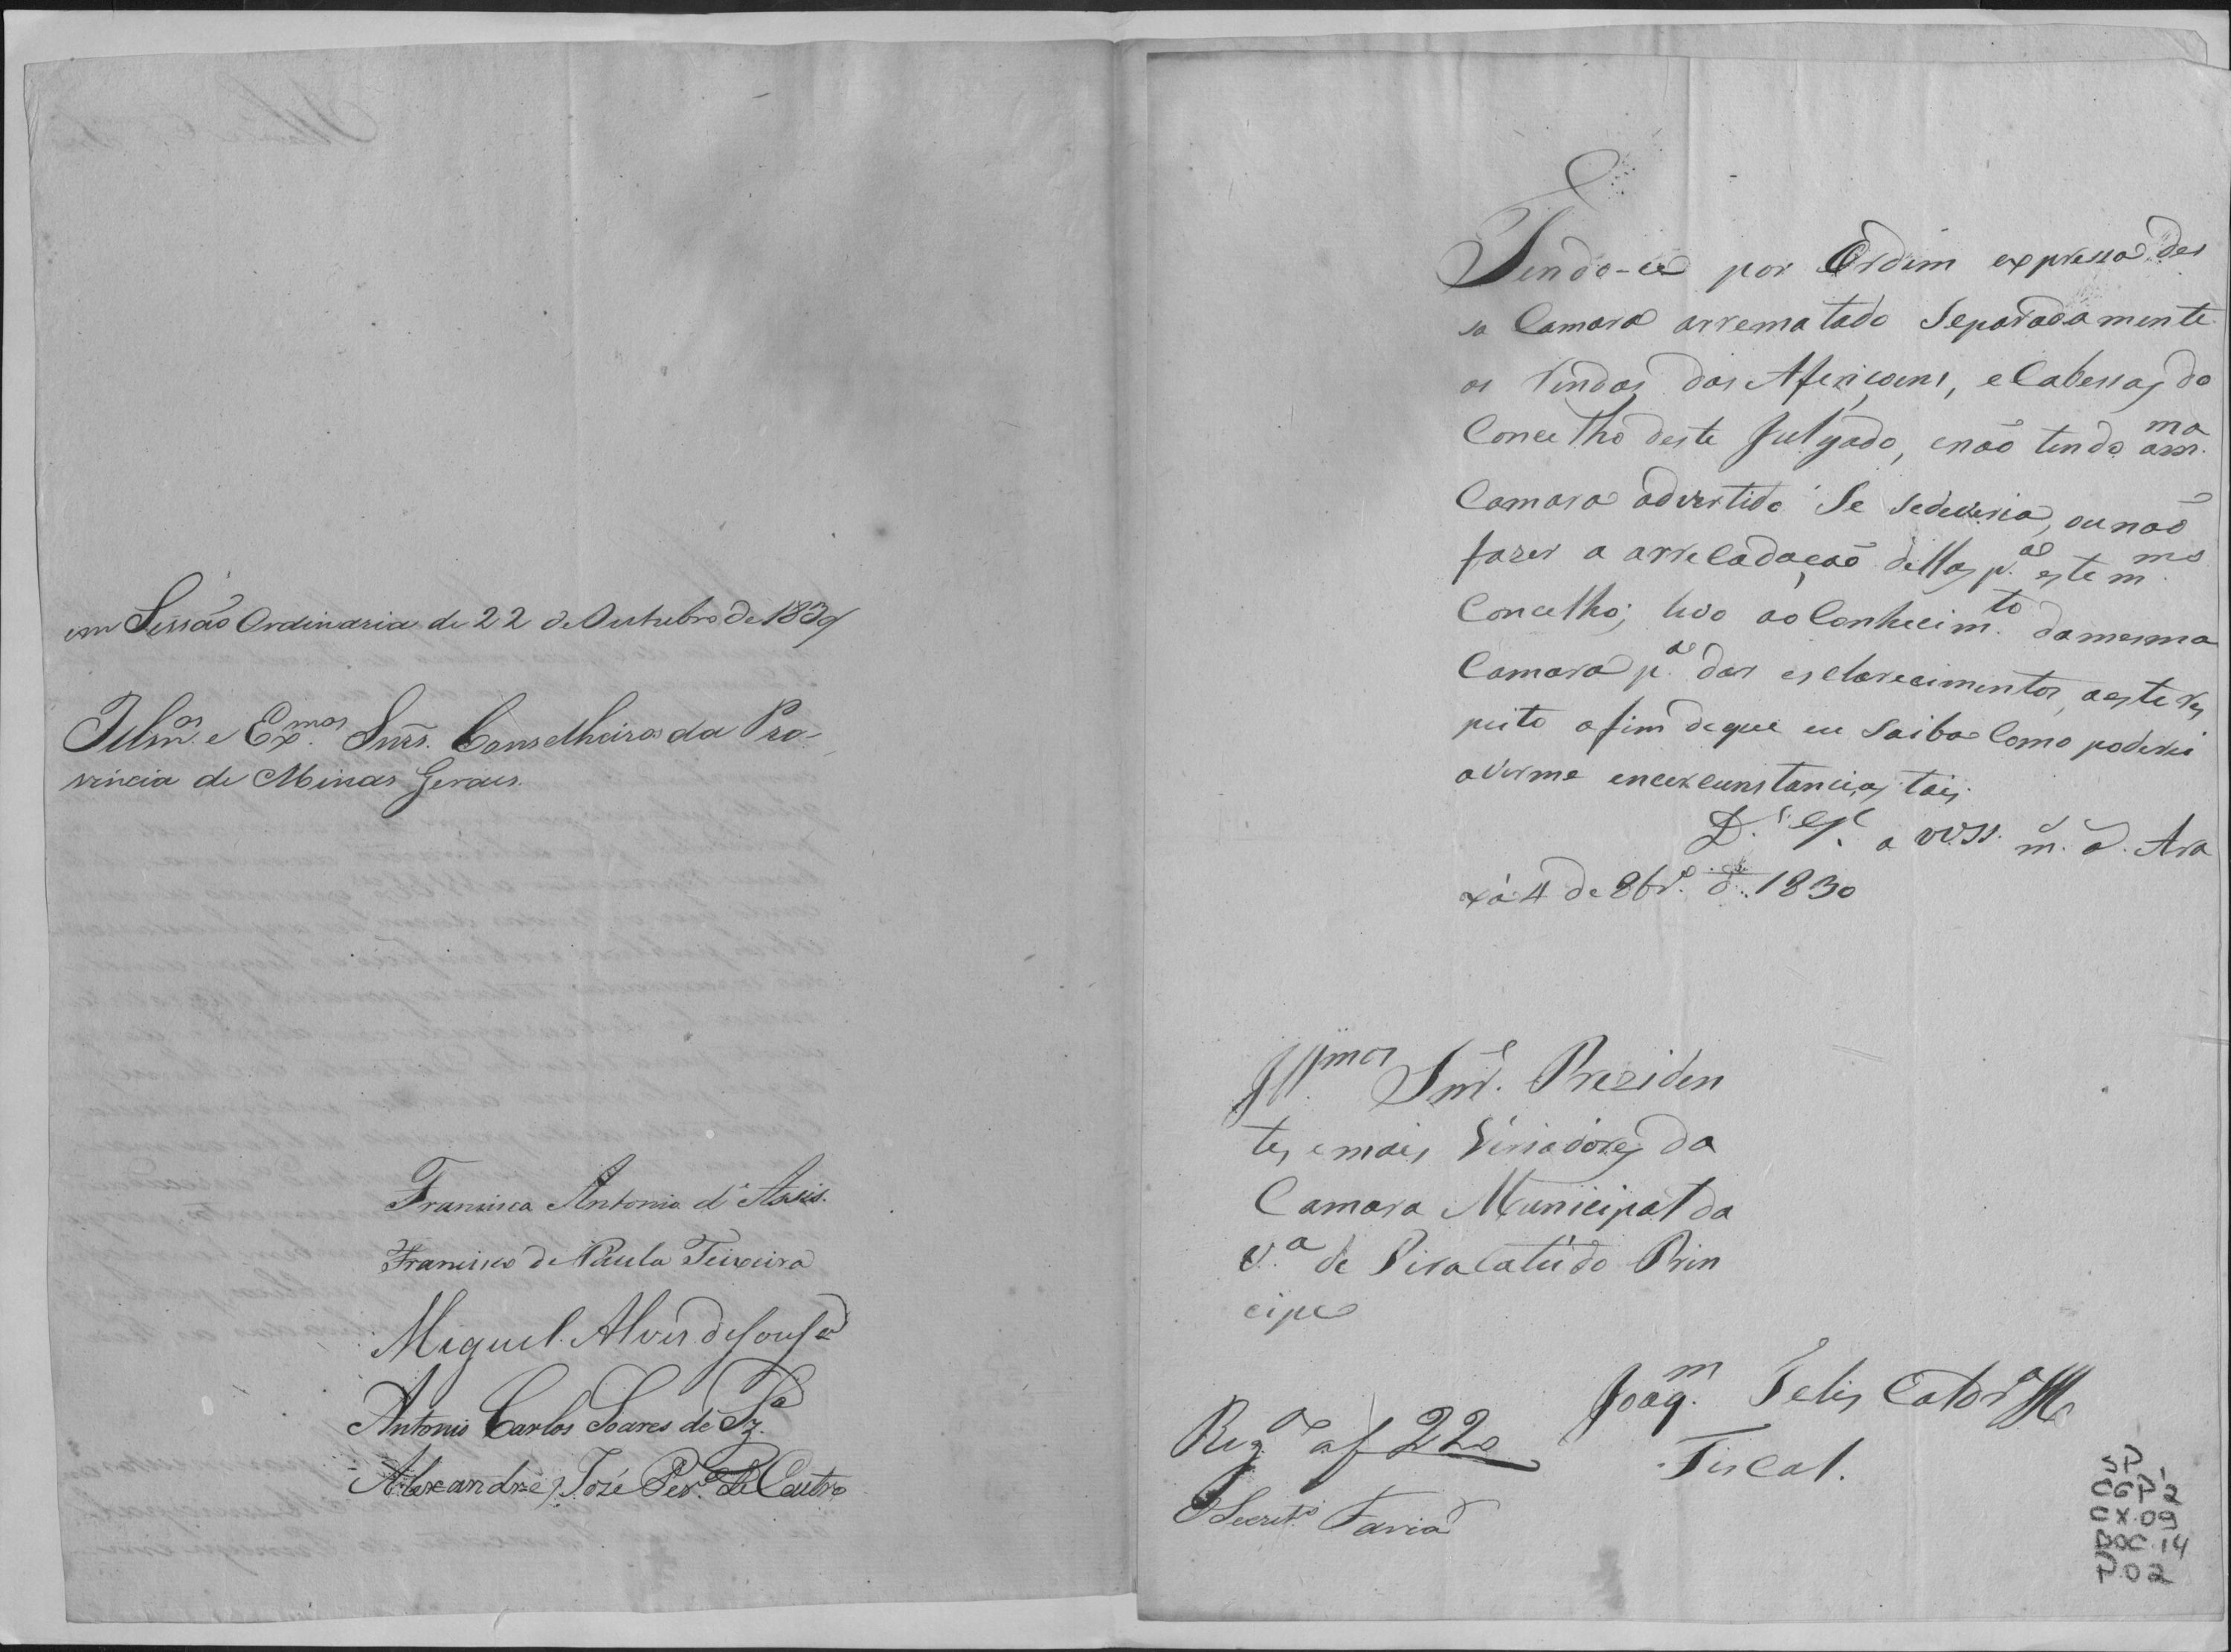 em Sessão Ordinaria de 22 de Outubro de 1830
Illm.os e Ex.mos Snrs. Conselheiros da Pro-
vincia de Minas Geraes.
Francisco Antonio d'Assis.
Francisco de Paula Teixeira
Miguel Alves de Sousa
Antonio Carlos Soares de Sz.a
Alexandre José Per.a de Castro
Tendo-ce por Ordem expressa des
sa Camara arrematado Separadamente
as Rendas das Afericoens, e Cabessas do
Concelho deste Julgado, enão tendo am.ma
Camara advertido Se sedeveria, ounão
fazer a arrecadação dellas p.a este m.mo
Concelho; levo ao Conhecim.to damesma
Camara p.a dar esclarecimentos, aeste res
peito afim deque eu Saiba Como poderei
averme encircunstancias tais.
D.s G.e a VV.SS. m. a. Ara
xá 4 de 8br.o d. 1830
Ill.mos Snr. Preziden
te, emais Veriadores da
Camara Municipal da
V.a de Paracatú do Prin
cipe
Joaq.m Felis
Fiscal.
Reg.o af 22
Secret.o Faria
SP
CGP 2
CX.09
DOC.14
P.02